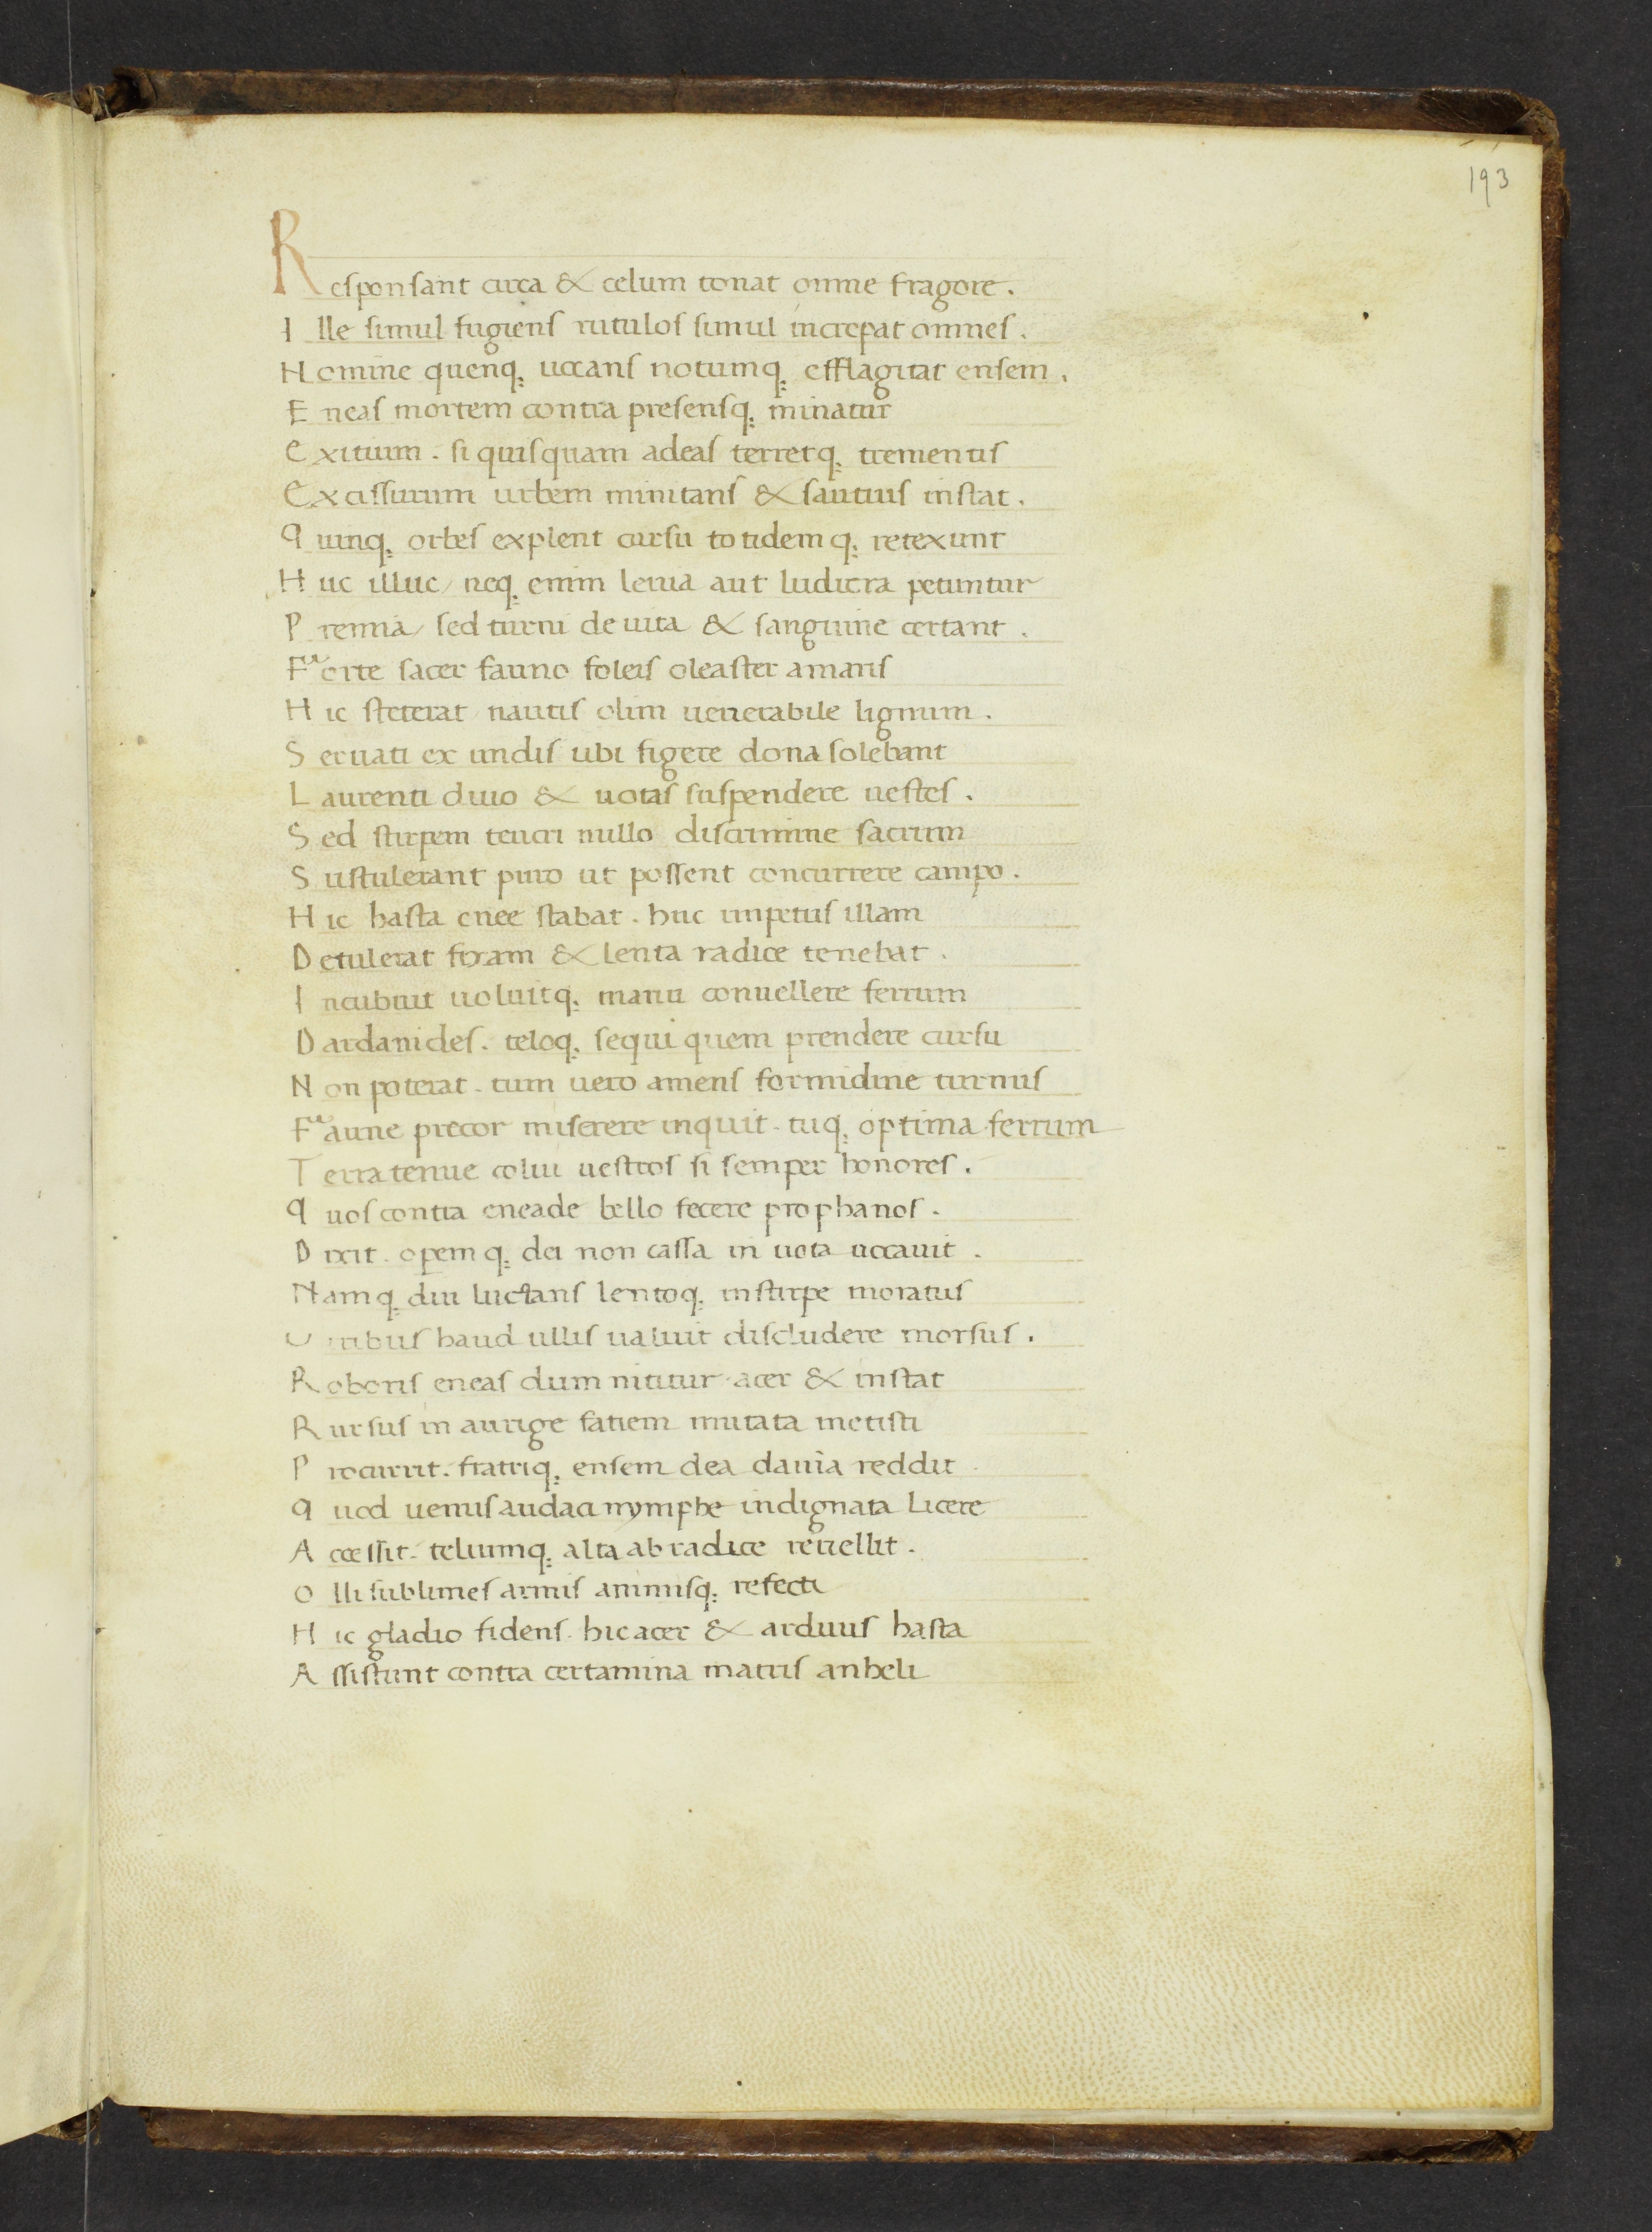 193
Responsant circa & celum tonat omne fragore.
Ille simul fugiens rutulos simul increpat omnes.
Nomine quenq; uocans notumq; efflagitat ensem.
Eneas mortem contra presensq; minatur
Exitium. si quisquam adeas terretq; trementis
Excissurum urbem minitans & sautius instat.
Quinq; orbes explent cursu totidemq; retexunt
Huc illuc/ neq; enim leuia aut ludicra petuntur
Premia/ sed turni de uita & sanguine certant.
Forte sacer fauno foleis oleaster amaris
Hic steterat nautis olim uenerabile lignum.
Seruati ex undis ubi figere dona solebant
Laurenti diuo & uotas suspendere uestes.
Sed stirpem teucri nullo discrimine sacrum
Sustulerant puro ut possent concurrere campo.
Hic hasta enee stabat. huc impetus illam
Detulerat fixam & lenta radice tenebat.
Incubuit uoluitq; manu conuellere ferrum
Dardanides. teloq; sequi quem prendere cursu
Non poterat. tum uero amens formidine turnus
Faune precor miserere inquit. tuq; optima ferrum
Terra tenue colui uestros si semper honores.
Quos contra eneade bello fecere prophanos.
Dixit. opemq; dei non cassa in uota uocauit.
Namq; diu luctans lentoq; in stirpe moratus
Uiribus haud ullis ualuit discludere morsus.
Roboris eneas dum nititur acer & instat
Rursus in aurige fatiem mutata metisti
Procurrit. fratriq; ensem dea dauia reddit
Quod uenus audaci nymphe indignata licere
Accessit. telumq; alta ab radice reuellit.
Olli sublimes armis animisq; refecti
Hic gladio fidens. hic acer & arduus hasta
Assistunt contra certamina matris anheli